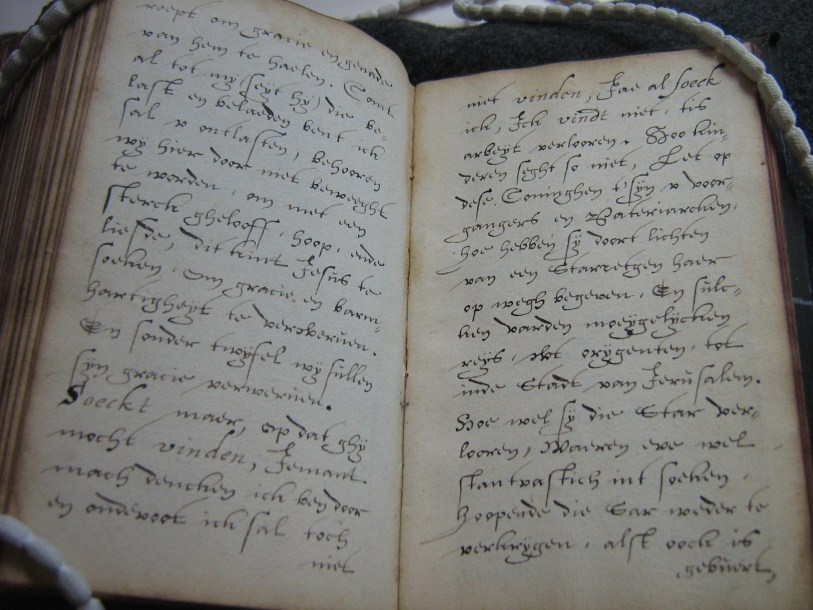 roept om gracie en genade
van hem te haelen. Comt
al tot my (seyt hy) die be-
last en belaeden bent ick
sal v ontlasten, behooren
wy hier door niet beweeght
te worden, om met een
sterck gheloof, hoop, ende
liefde, dit kint Jesus te
soeken, om gracie en barm-
hartigheyt te verwerven.
En sonder twyfel wy sullen
syn gracie verwerven.
Soeckt maer, op dat ghy
mocht vinden, Jemant
mach dencken ick ben door
en ondervoet ick sal toch
niet
niet vinden, Jae al soeck
ick, Ick vindt niet, tis
arbeyt verlooren. Soo kin-
deren seght so niet, Let op
dese Coninghen t'syn v voor-
gangers en Pateriarcken,
hoe hebben sy door't lichten
van een Starretgen haer
op wegh begeven, En sulc-
ken varden moeygelycken
reys, wt orygenten, tot
inde Stadt van Jerusalem.
Hoe wel sy die Star ver-
looren, Waeren eve wel
stantvastich int soeken,
hoopende die Sar weder te
verkrygen, alst oock is
gebuert,